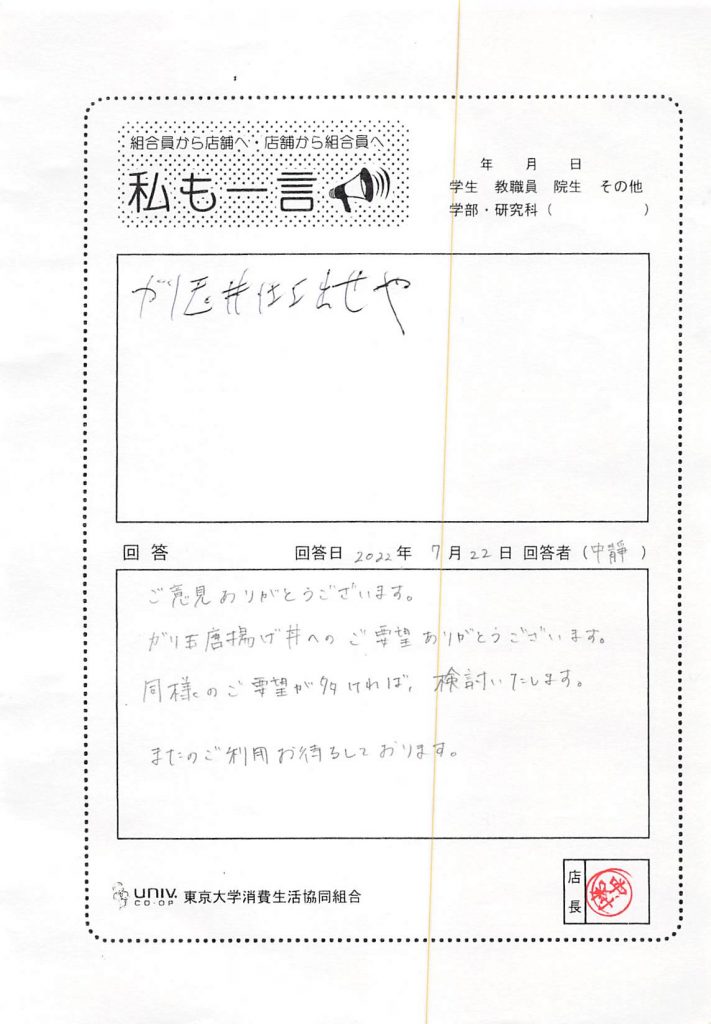 組合員から店舗へ・店舗から組合員へ
私も一言
年 月 日
学生 教職員 院生 その他
学部・研究科( )
がり玉丼仕上出せや
回答 回答日 2022年 7月22日 回答者(中静)
ご意見ありがとうございます。
がり玉唐揚げ丼へのご要望ありがとうございます。
同様のご要望が多ければ、検討いたします。
またのご利用お待ちしております。
UNIV. CO-OP 東京大学消費生活協同組合
店長